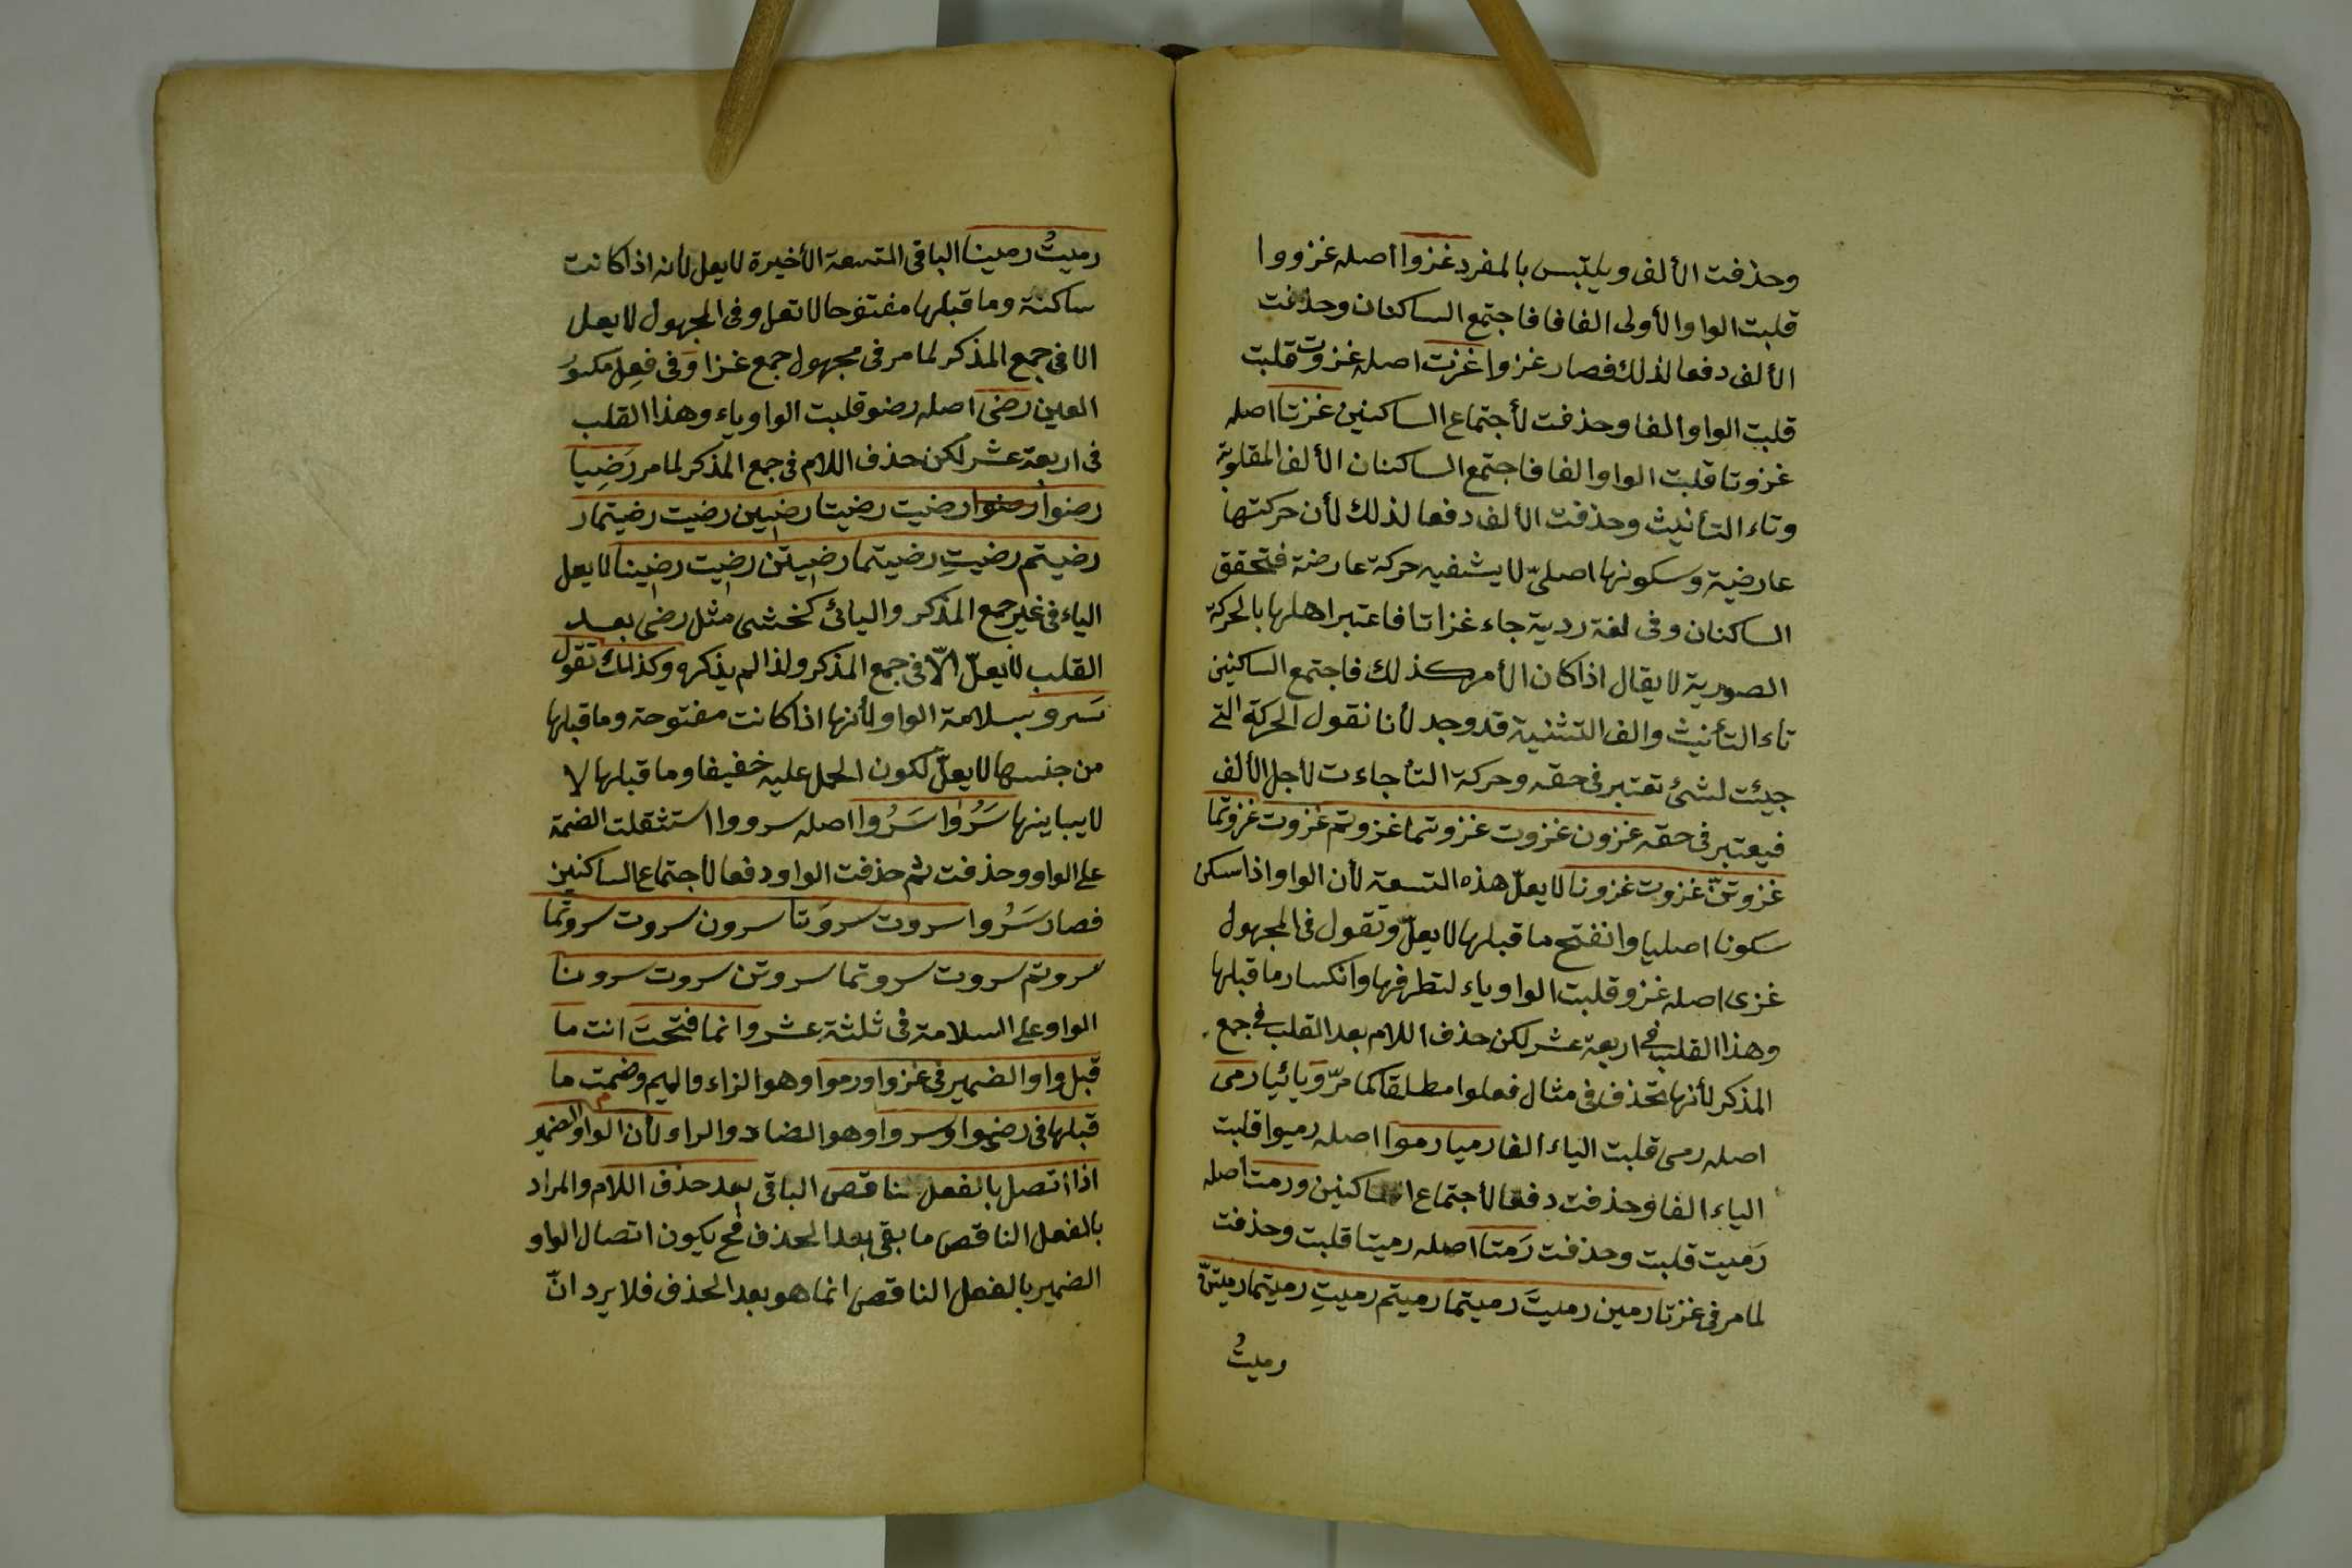 وحذفت الألف ويلتبس بالمفرد غزوا اصله غزووا
قلبت الواو الأولى الفا فاجتمع الساكنان وحذفت
الألف دفعا لذلك فصار غزوا غزت اصله غزوت قلبت
قلبت الواو الفا وحذفت لأجتماع الساكنين غزتا اصله
غزوتا قلبت الواو الفا فاجتمع الساكنان الألف المقلوبة
وتاء التأنيث وحذفت الألف دفعا لذلك لأن حركتها
عارضية وسكونها اصلىّ حركة عارضة فتحقق
الساكنان وفى لغة ردية جاء غزاتا فاعتبر اهلها بالحركة
الصورية لا يقال اذا كان الأمر كذلك فاجتمع الساكنين
تاء التأنيث والف التثنية قد وجد لأنا نقول الحركة التى
جيئت لشئ تعتبر فى حقه وحركة التأ جاءت لأجل الألف
فيعتبر فى حقه غزون غزوت غزوتما غزوتم غزوت غزوتما
غزوتنّ غزوت غزونا لا يعلّ هذه التسعة لأن الواو اذا سكن
سكونا اصليا وانفتح ما قبلها لا يعلّ وتقول فى المجهول
غزى اصله غزو قلبت الواو ياء لتطرفها وانكسار ما قبلها
وهذا القلب فى اربعة عشر لكن حذف اللام بعد القلب فى جمع
المذكر لأنها تحذف فى مثال فعلوا مطلقا كما مرّ ويائيا رمى
اصله رمى قلبت الياء الفا رميا رموا اصله رميوا قلبت
الياء الفا وحذفت دفعا لأجتماع الساكنين ورمت اصله
رَميت قلبت وحذفت رَمتا اصله رميتا قلبت وحذفت
لما مر فى غزتا رمين رميتَ رميتما رميتم رميتِ رميتما رميتنّ
رميتُ
رميتُ رمينا الباقى التسعة الأخيرة لا يعل لأنه اذا كانت
ساكنة وما قبلها مفتوحا لا تعل وفى المجهول لا يعل
الا فى جمع المذكر لما مر فى مجهول جمع غزا وفى فعِل مكسور
العين رضى اصله رضو قلبت الواو ياء وهذا القلب
فى اربعة عشر لكن حذف اللام فى جمع المذكر لما مر رَضِيا
رضوا رضوا رضيت رضيتا رضين رضيت رضيتما ر
رضيتم رضيتِ رضيتما رضيتن رضيت رضينا لا يعل
الياء فى غير جمع المذكر واليائى كخشى مثل رضى بعد
القلب لا يعلّ الّا فى جمع المذكر ولذا لم يذكره وكذلك تقول
سَرو بسلامة الواو لأنها اذا كانت مفتوحة وما قبلها
من جنسها لا يعلّ لكون الحمل عليه خفيفا وما قبلها لا
لا يباينها سَرُوَا سَرُوا اصله سرووا استثقلت الضمة
على الواو وحذفت ثم حذفت الواو دفعا لأجتماع الساكنين
فصار سَرُوا سروت سروَتا سرون سروت سروتما
سروتم سروت سروتما سروتن سروت سرونا
الواو على السلامة فى ثلثة عشر وانما فتحتَ انت ما
قبل واو الضمير فى غزوا ورموا وهو الزاء والميم وضمت ما
قبلها فى رضوا وسروا وهو الضاد والراء لأن الواو الضمير
اذا اتصل بالفعل الناقص الباقى بعد حذف اللام والمراد
بالفعل الناقص ما بقى بعد الحذف فح يكون اتصال الواو
الضمير بالفعل الناقص انما هو بعد الحذف فلا يرد انّ